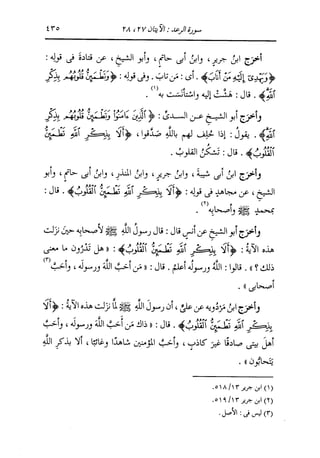 سورة الرعد : الآيتان ٢٧، ٢٨ ٤٣٥
أخرج ابنُ جريرٍ، وابنُ أبى حاتمٍ، وأبو الشيخِ، عن قتادةَ فى قولِه :
﴿وَيَهْدِىٓ إِلَيْهِ مَنْ أَنَابَ﴾. أى : مَن تاب. وفى قولِه : ﴿وَتَطْمَئِنُّ قُلُوبُهُم بِذِكْرِ
ٱللَّهِ﴾. قال : هَشَّت إليه واسْتأنَسَت به (١).
وأخرَج أبو الشيخِ عن السدىِّ : ﴿ٱلَّذِينَ ءَامَنُوا وَتَطْمَئِنُّ قُلُوبُهُم بِذِكْرِ
ٱللَّهِ﴾. يقولُ : إذا حُلِف لهم باللَّهِ صَدَّقوا، ﴿أَلَا بِذِكْرِ ٱللَّهِ تَطْمَئِنُّ
ٱلْقُلُوبُ﴾. قال : تَسْكُنُ القلوبُ.
وأخرَج ابنُ أبى شيبةَ، وابنُ جريرٍ، وابنُ المنذرِ، وابنُ أبى حاتمٍ، وأبو
الشيخِ، عن مجاهدٍ فى قولِه : ﴿أَلَا بِذِكْرِ ٱللَّهِ تَطْمَئِنُّ ٱلْقُلُوبُ﴾. قال :
بمحمدٍ ﷺ وأصحابِه (٢).
وأخرَج أبو الشيخِ عن أنسٍ قال : قال رسولُ اللَّهِ ﷺ لأصحابِه حينَ نزَلت
هذه الآيةُ : ﴿أَلَا بِذِكْرِ ٱللَّهِ تَطْمَئِنُّ ٱلْقُلُوبُ﴾ : « هل تَدْرُون ما معنى
ذلك؟ ». قالوا : اللَّهُ ورسولُه أعلمُ. قال : « مَن أحَبَّ اللَّهَ ورسولَه، وأحَبَّ (٣)
أصحابى ».
وأخرَج ابنُ مَرْدُويَه عن علىٍّ، أن رسولَ اللَّهِ ﷺ لمَّا نزَلت هذه الآيةُ : ﴿أَلَا
بِذِكْرِ ٱللَّهِ تَطْمَئِنُّ ٱلْقُلُوبُ﴾. قال : « ذاك مَن أحَبَّ اللَّهَ ورسولَه، وأحَبَّ
أهلَ بيتى صادقًا غيرَ كاذبٍ، وأحَبَّ المؤمنين شاهدًا وغائبًا، ألا بذكرِ اللَّهِ
يَتَحابُّون ».
(١) ابن جرير ١٣/ ٥١٨.
(٢) ابن جرير ١٣/ ٥١٩.
(٣) ليس فى : الأصل.